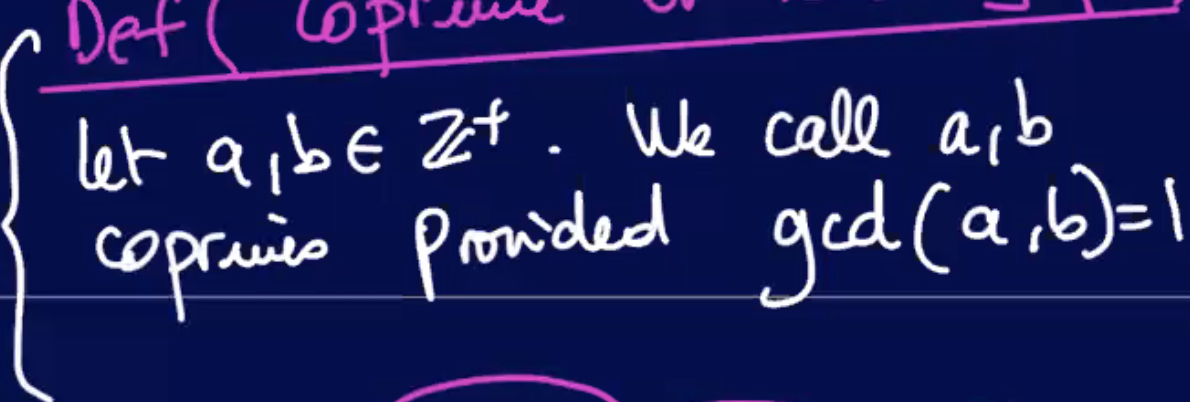 Def ( coprime or
let a, b ∈ ℤ⁺. We call a, b
coprimes provided gcd(a, b)=1